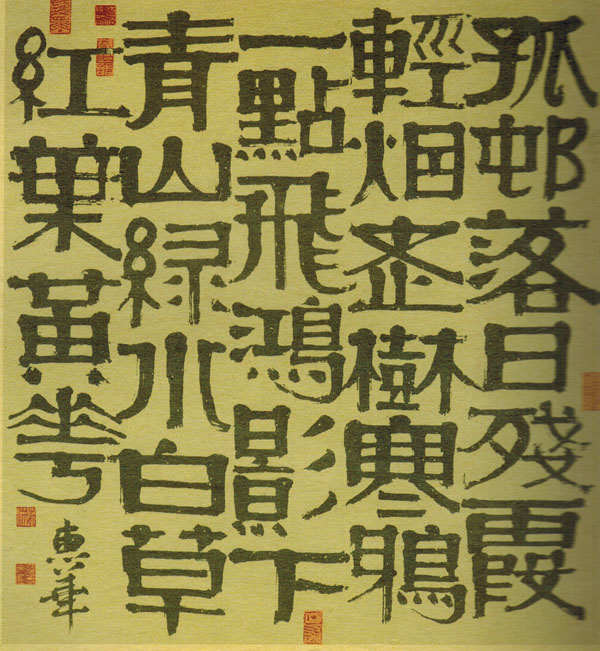 孤邨落日殘霞
輕烟老樹寒鴉
一點飛鴻影下
青山緑水白草
紅葉黃花